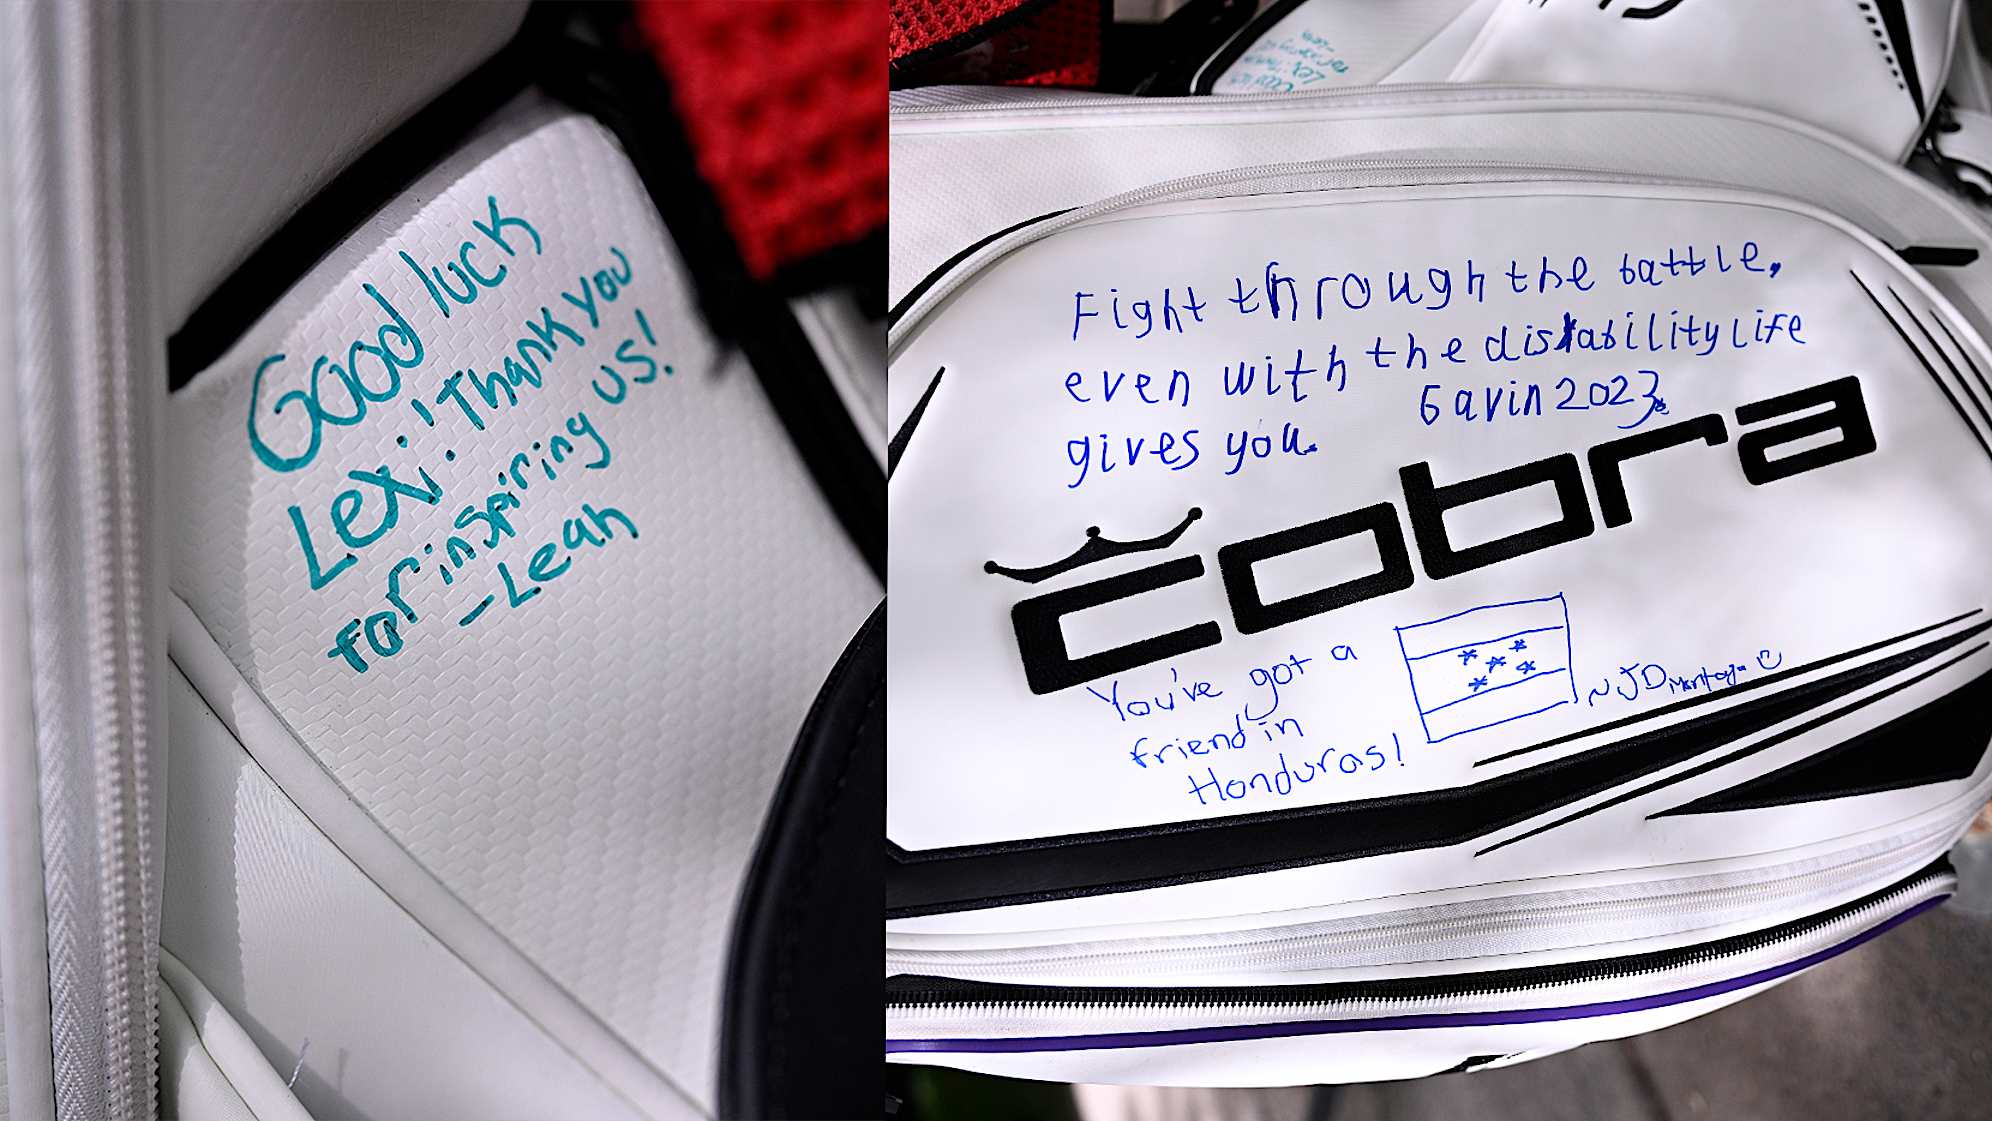 Good luck
Lexi! Thank you
for inspiring us!
-Leah
Fight through the battle,
even with the disability life
gives you.
Gavin 2023
cobra
You've got a
friend in
Honduras!
~JD